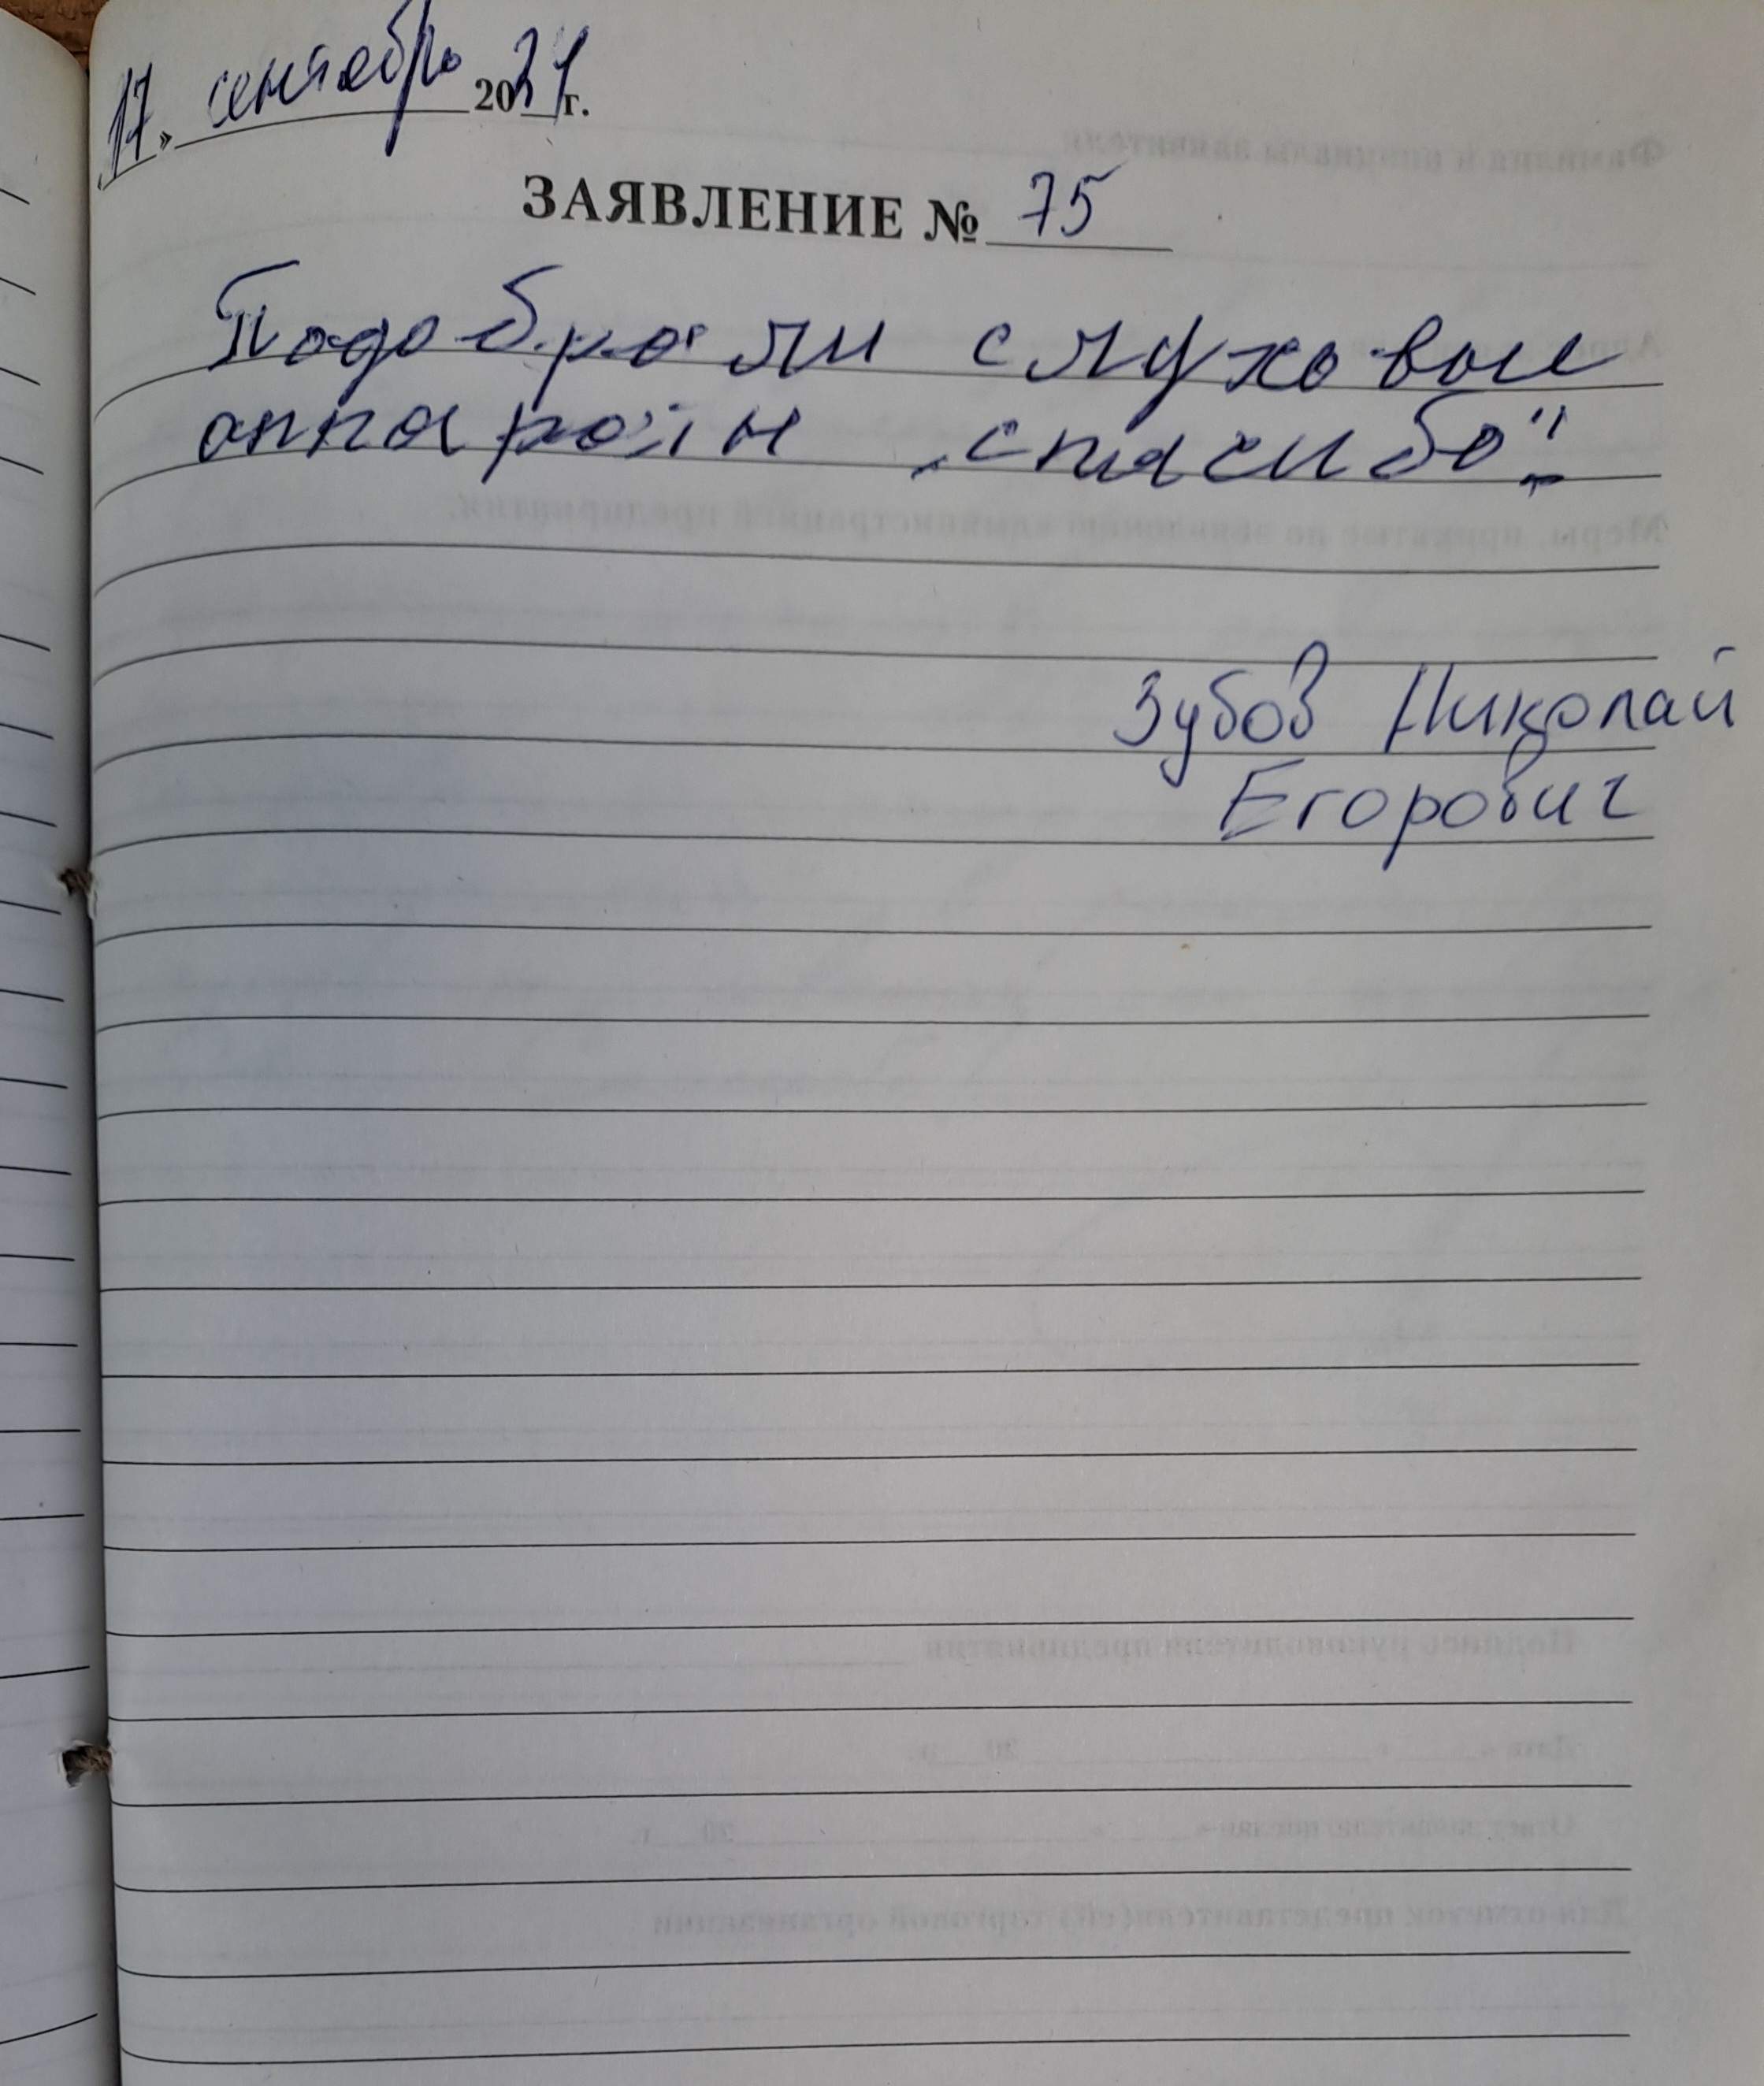 17. » сентябрь 2021 г.
ЗАЯВЛЕНИЕ № 75
Подобрали слуховые
аппараты „спасибо“.
Зубов Николай
Егорович